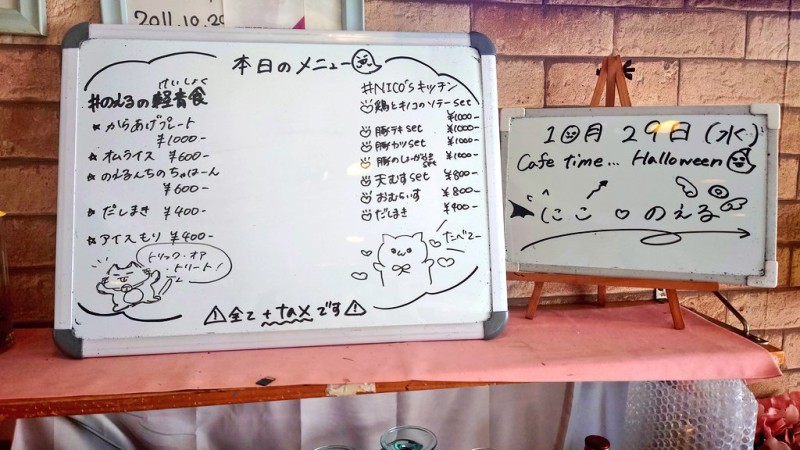 2011.10.29
本日のメニュー
けいしょく
#のえるの軽食
★ からあげプレート
¥1000-
★ オムライス ¥600-
★ のえるんちのちゃはーん
¥600-
★ だしまき ¥400-
★ アイスもり ¥400-
トリック・オア
・トリート!
#NICO'sキッチン
鶏とキノコのソテーset
¥1000-
豚テキset ¥1000-
豚カツset ¥1000-
豚のしょーが焼きset ¥1000-
天むすset ¥800-
おむらいす ¥800-
だしまき ¥400-
たべてー
⚠全て+taxです⚠
10月29日(水)
Cafe time... Halloween
にこ ♡ のえる